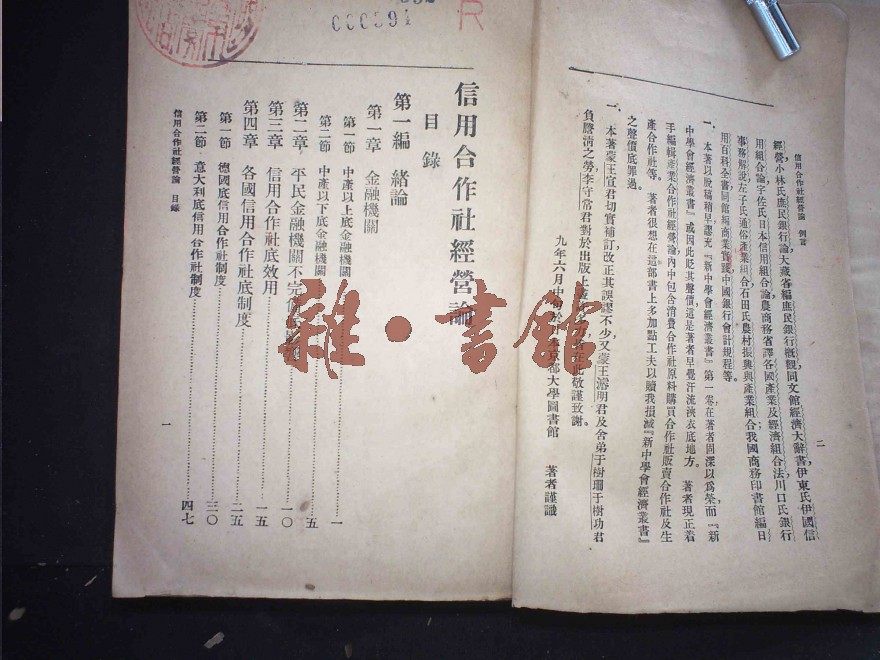 信用合作社經營論 例言
二
經營小林氏庶民銀行論大藏省編庶民銀行概觀同文館經濟大辭書伊東氏伊國信
用組合論宇佐氏日本信用組合論農商務省譯各國產業及經濟組合法川口氏銀行
事務解說左子氏通俗產業組合石田氏農村振興與產業組合我國商務印書館編日
用百科全書同館編商業實踐中國銀行會計規程等。
一、本著以脫稿稍早謬充『新中學會經濟叢書』第一卷在著者固深以爲榮而『新
中學會經濟叢書』或因此貶其聲價這是著者早覺汗流浹衣底地方。著者現正着
手編輯產業合作社經營論內中包含消費合作社原料購買合作社販賣合作社及生
產合作社等。著者很想在這部書上多加點工夫以贖我損滅『新中學會經濟叢書』
之聲價底罪過。
一、本著蒙王宣君切實補訂改正其誤謬不少又蒙王濬明君及舍弟于樹珊于樹功君
負謄清之勞李守常君對於出版上在此敬謹致謝。
九年六月中旬於京都大學圖書館 著者謹識
000591
R
信用合作社經營論
目錄
第一編 緒論
第一章 金融機關
第一節 中產以上底金融機關 一
第二節 中產以下底金融機關 五
第二章 平民金融機關不完備 一〇
第三章 信用合作社底效用 一五
第四章 各國信用合作社底制度 二五
第一節 德國底信用合作社制度 三〇
第二節 意大利底信用合作社制度 四七
信用合作社經營論 目錄
一
雜·書館